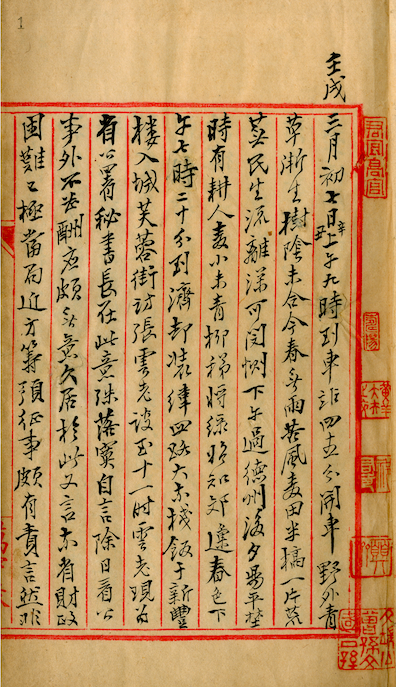 壬戌
三月初七日辛丑上午九時到車站四十五分開車野外青
草漸生樹陰未合今春無雨苦風麥田半槁一片荒
蕪民生流離深可閔惻下午過德州後夕陽平埜
時有耕人麥小未青柳稊將綠始知郊邍春色下
午七時二十分到濟卸裝緯四路大東棧飯于新豐
樓入城芙蓉街訪張雲老談至十一時雲老現為
省公署秘書長在此意殊落寞自言除日看公
事外不甚酬應頗無意久居於此又言東省財政
困難已極當局近方籌預征事頗有責言然非
君宜高官
1